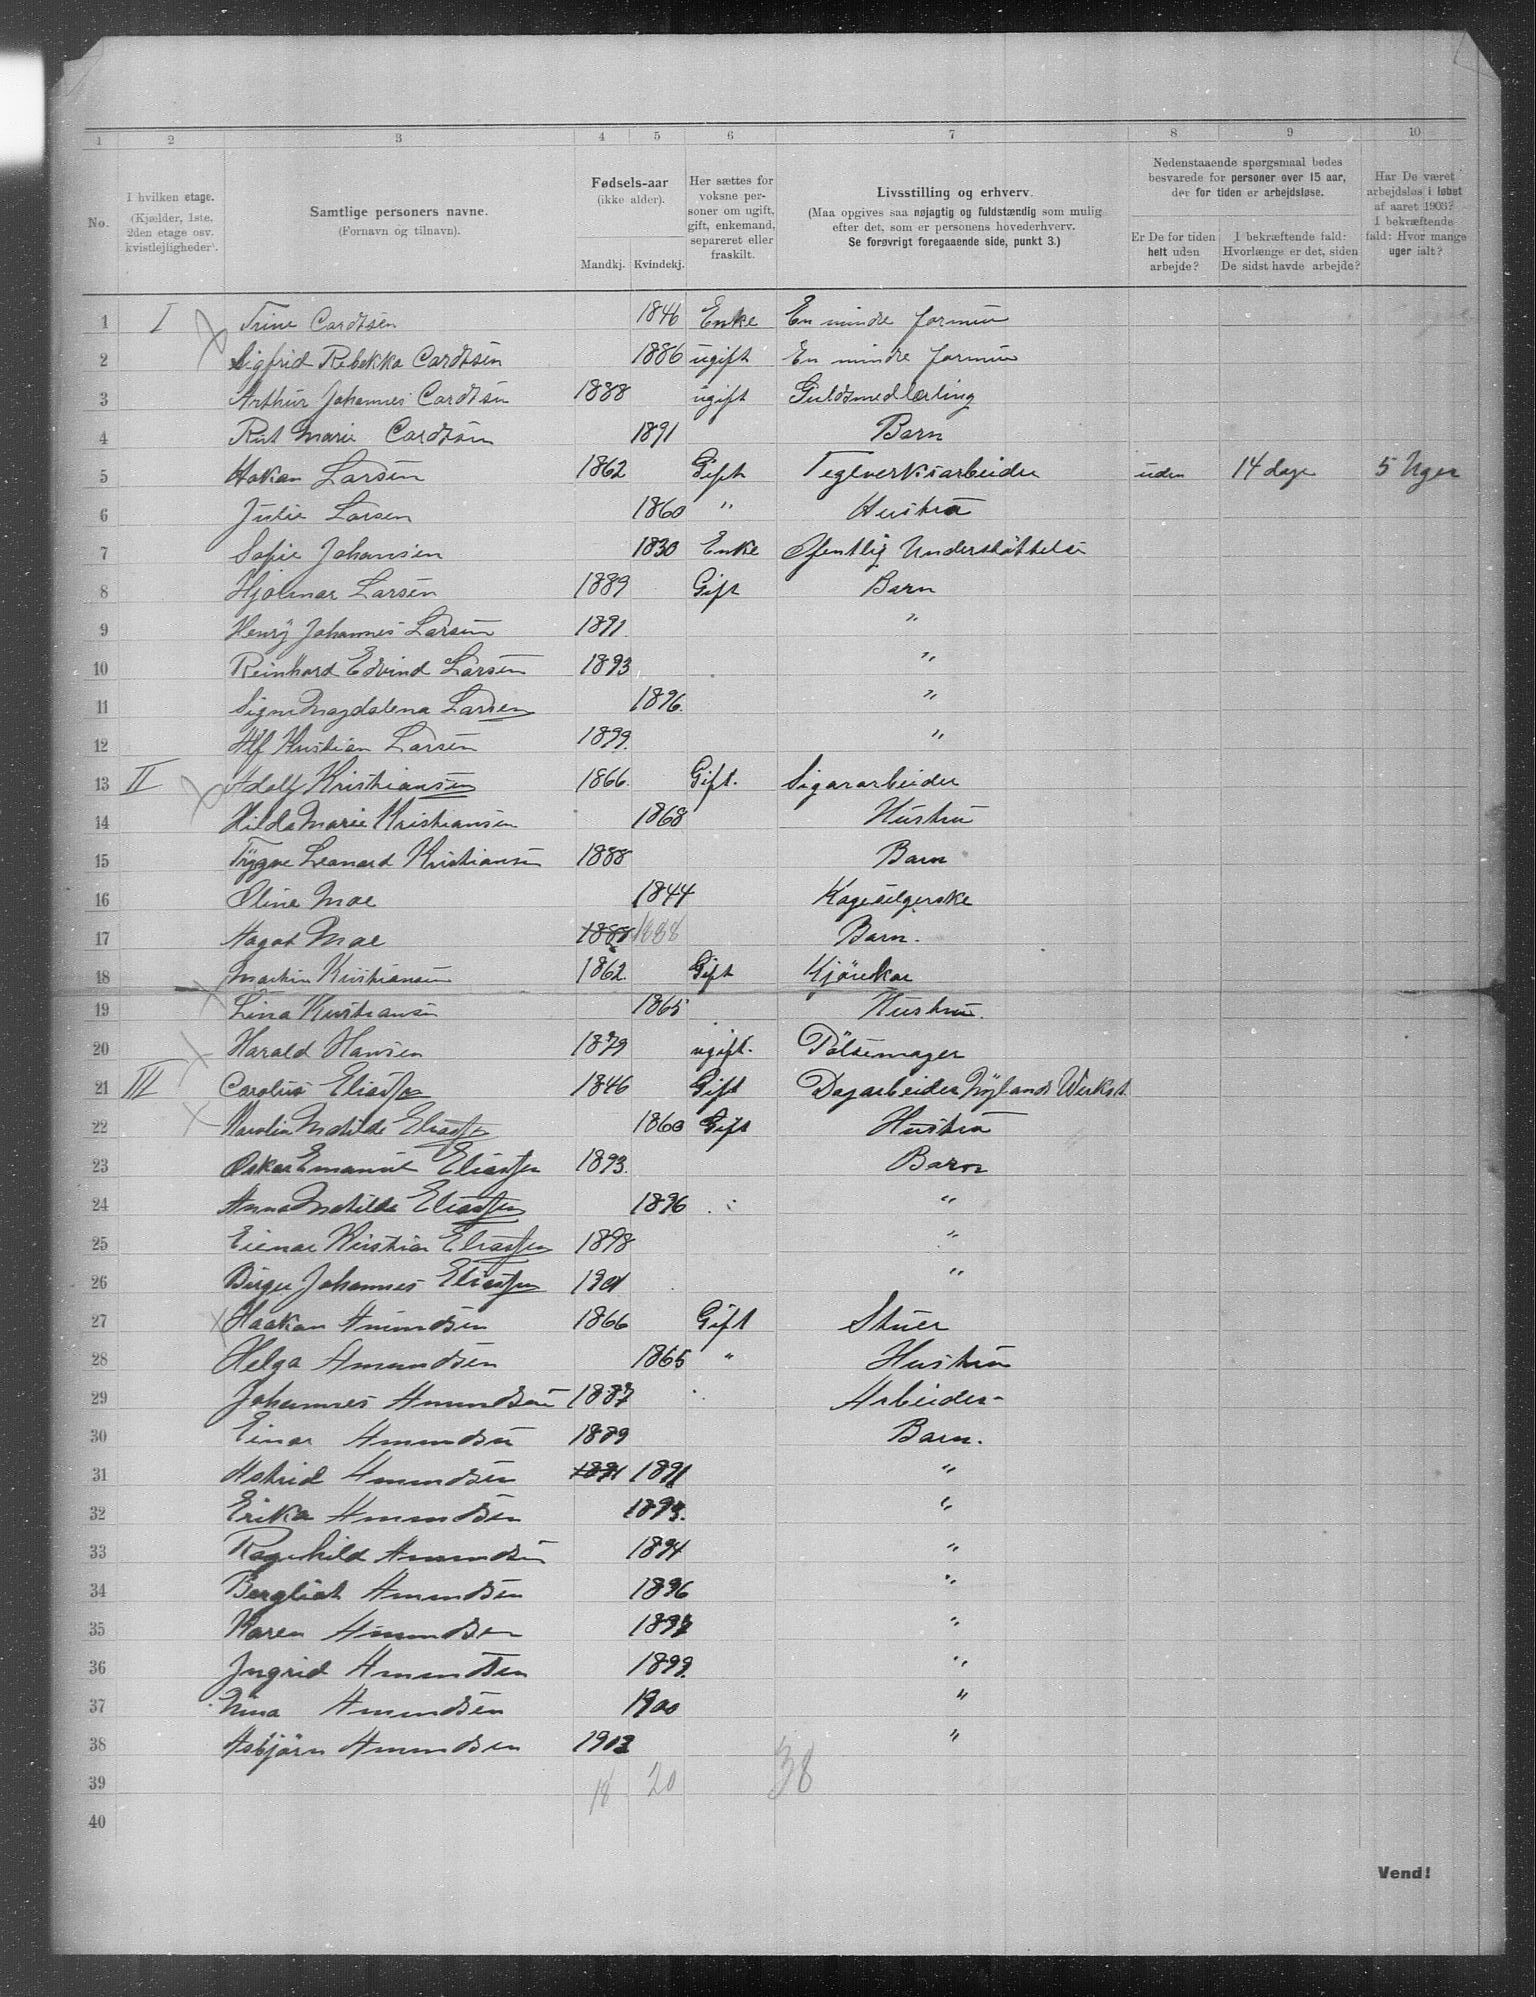 1 2 3 4 5 6 7 8 9 10
No.
I hvilken etage.
(Kjælder, 1ste, 2den etage osv. kvistlejligheder).
Samtlige personers navne.
(Fornavn og tilnavn).
Fødsels-aar
(ikke alder).
Mandkj. Kvindekj.
Her sættes for voksne personer om ugift, gift, enkemand, separeret eller fraskilt.
Livsstilling og erhverv.
(Maa opgives saa nøjagtig og fuldstændig som mulig efter det, som er personens hovederhverv.
Se forøvrigt foregaaende side, punkt 3.)
Nedenstaaende spørgsmaal bedes besvarede for personer over 15 aar, der for tiden er arbejdsløse.
Er De for tiden helt uden arbejde?
I bekræftende fald: Hvorlænge er det, siden De sidst havde arbejde?
Har De været arbejdsløs i løbet af aaret 1903? I bekræftende fald: Hvor mange uger ialt?
1 I Trine Cardtsen 1846 Enke En mindre formue
2 Sigfrid Rebekka Cardtsen 1886 ugift En mindre formue
3 Arthur Johannes Cardtsen 1888 ugift Guldsmedlærling
4 Rut Marie Cardtsen 1891 Barn
5 Hakan Larsen 1862 Gift Teglverksarbeider uden 14 dage 5 Uger
6 Julie Larsen 1860 " Hustru
7 Sofie Johansen 1830 Enke Ofentlig Understøttelse
8 Hjalmar Larsen 1889 Gift Barn
9 Henry Johannes Larsen 1891 "
10 Reinhard Edvind Larsen 1893 "
11 Signe Magdalena Larsen 1896. "
12 Alf Kristian Larsen 1899. "
13 II Adolf Kristiansen 1866. Gift. Sigararbeider
14 Hilda Marie Kristiansen 1868 Hustru
15 Trygve Leonard Kristiansen 1888 Barn
16 Oline Moe 1844 Kageselgerske
17 Aagot Moe 1888 1888 Barn.
18 Martin Kristiansen 1862. Gift Kjørekar
19 Lina Kristiansen 1865 Hustru.
20 Harald Hansen 1879 ugift. Pølsemager
21 III Carolius Eliassen 1846 Gift Dagarbeider Nylands Verkst.
22 Karolin Matilde Eliassen 1860 Gift Hustru
23 Oskar Emanuel Eliassen 1893. Barn
24 Anna Matilde Eliassen 1896 "
25 Eienar Kristian Eliassen 1898 "
26 Birger Johannes Eliassen 1901 "
27 Haakan Amundsen 1866 Gift Stuer
28 Helga Amundsen 1865 " Hustru
29 Johannes Amundsen 1887 Arbeider
30 Einar Amundsen 1889 Barn.
31 Astrid Amundsen 1891 1891 "
32 Erika Amundsen 1893. "
33 Ragnhild Amundsen 1894 "
34 Bergliot Amundsen 1896 "
35 Karen Amundsen 1897 "
36 Ingrid Amundsen 1899. "
37 Nina Amundsen 1900 "
38 Asbjørn Amundsen 1903 "
39 18 20 38
40
Vend!